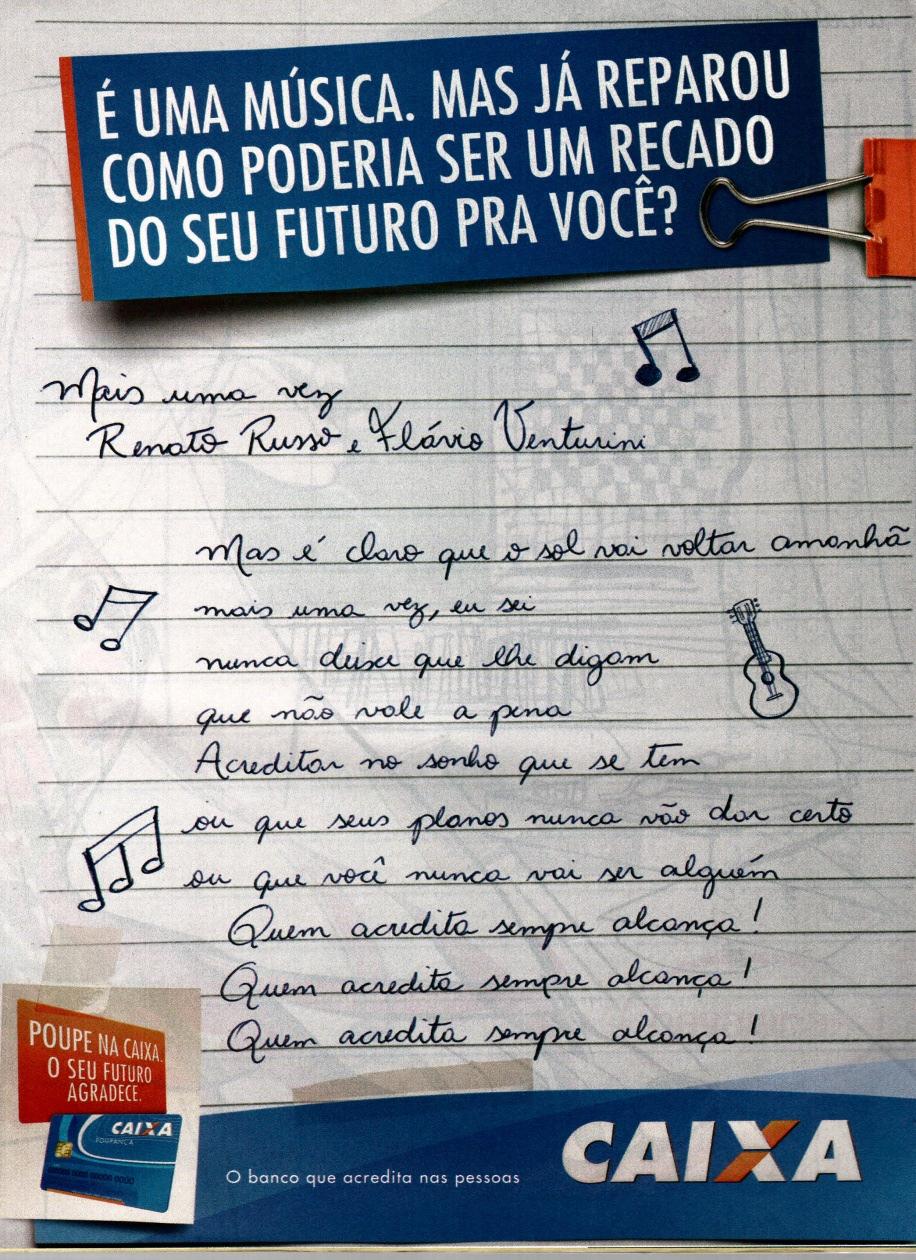 É UMA MÚSICA. MAS JÁ REPAROU
COMO PODERIA SER UM RECADO
DO SEU FUTURO PRA VOCÊ?
Mais uma vez
Renato Russo e Flávio Venturini
Mas é claro que o sol vai voltar amanhã
mais uma vez, eu sei
nunca deixe que lhe digam
que não vale a pena
Acreditar no sonho que se tem
ou que seus planos nunca vão dar certo
ou que você nunca vai ser alguém
Quem acredita sempre alcança!
Quem acredita sempre alcança!
Quem acredita sempre alcança!
POUPE NA CAIXA.
O SEU FUTURO
AGRADECE.
CAIXA
POUPANÇA
O banco que acredita nas pessoas
CAIXA